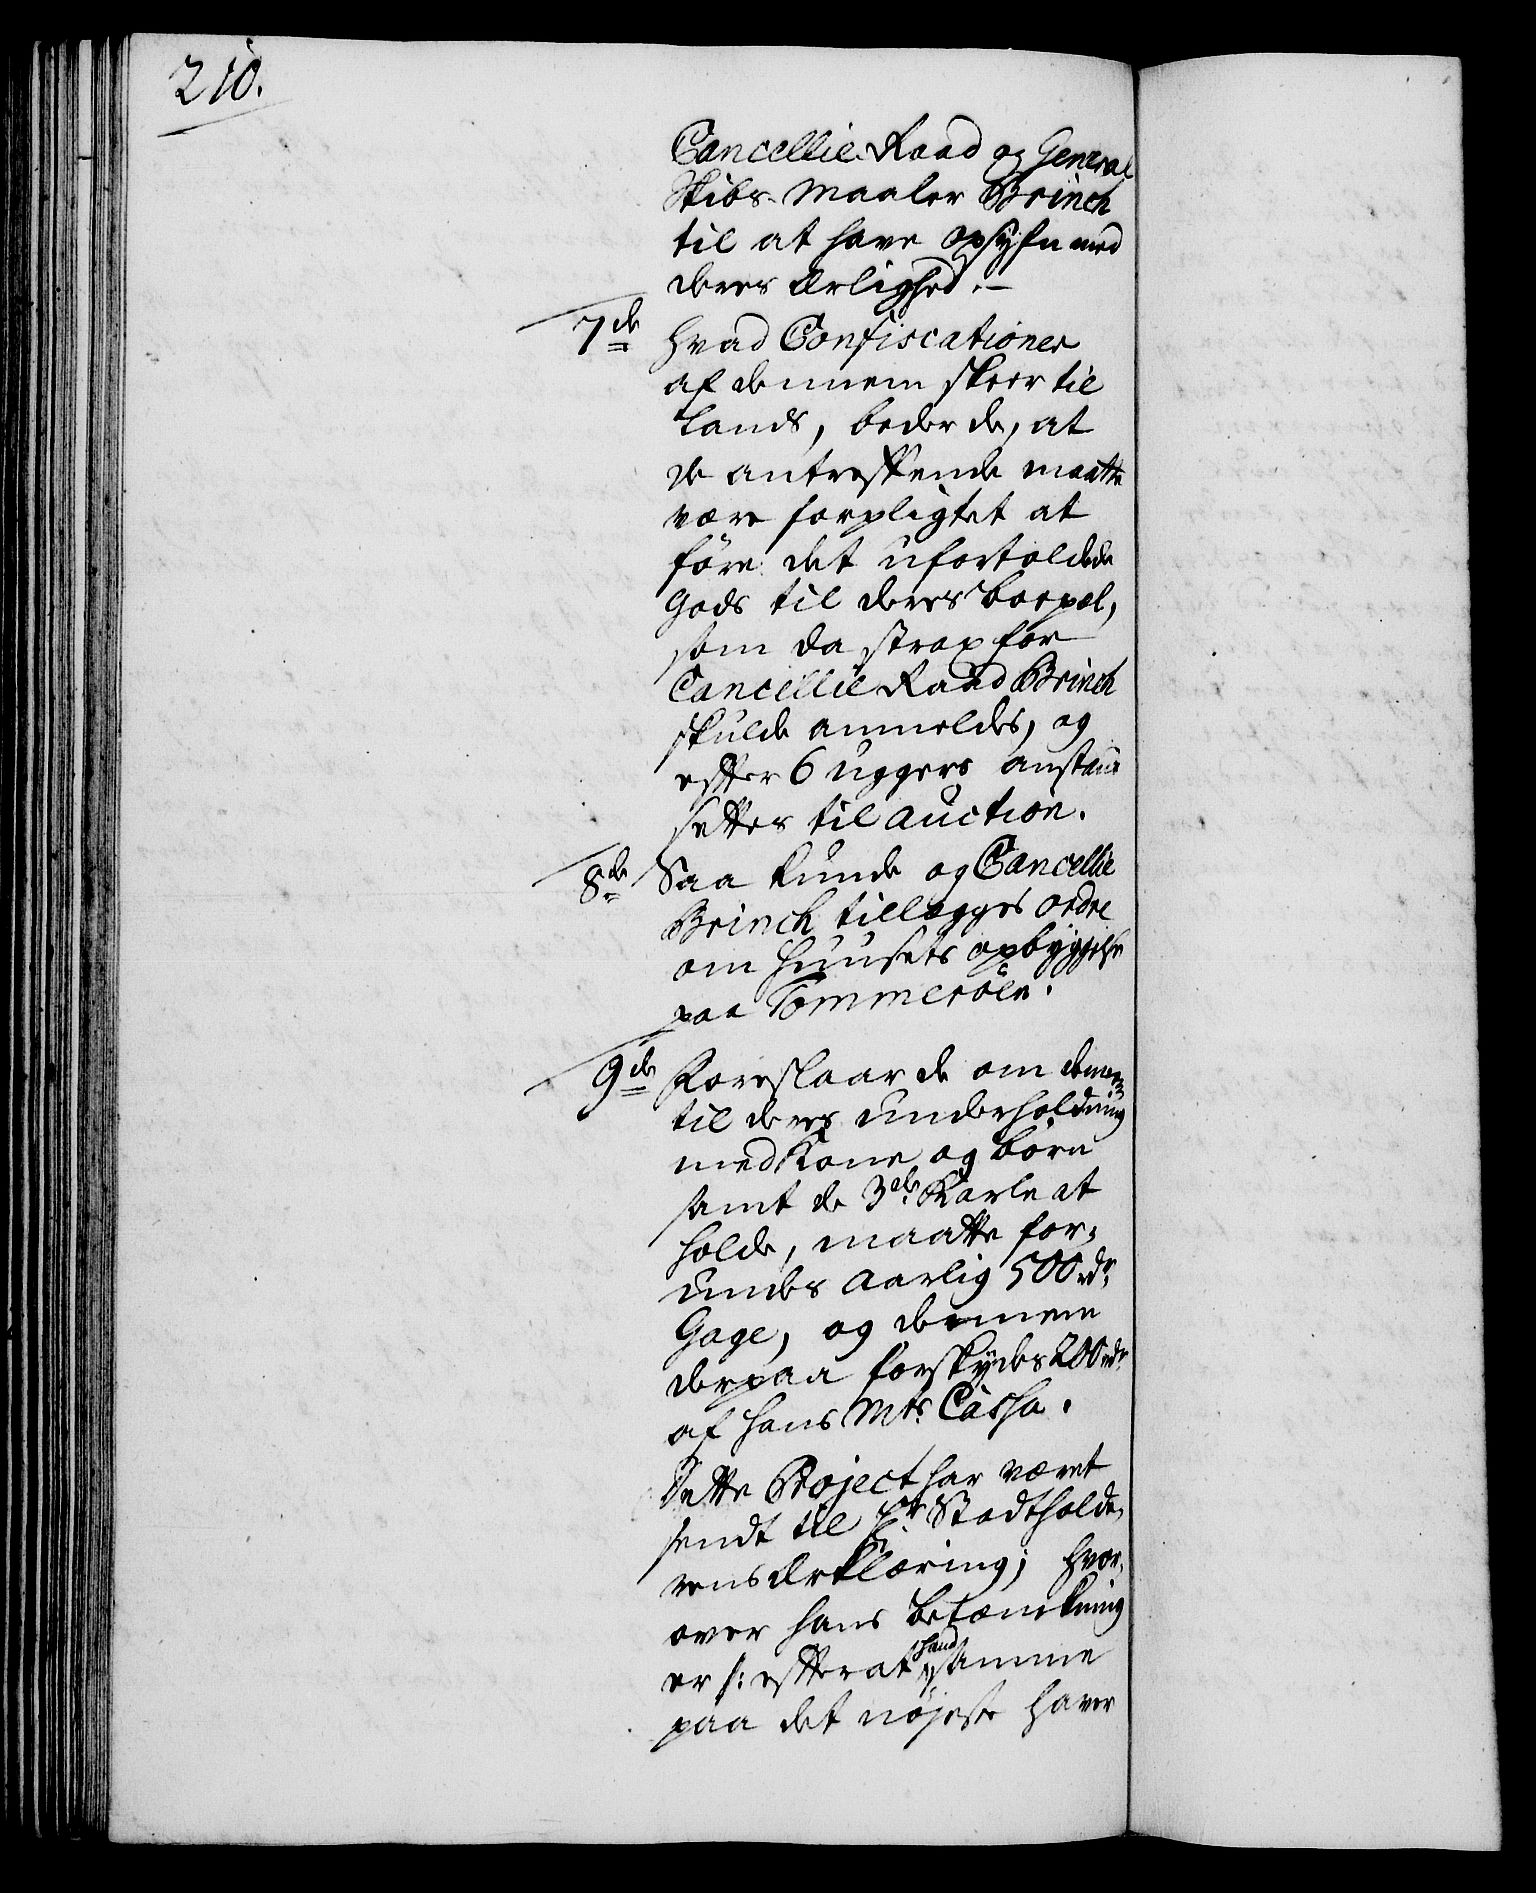 210.
Cancellie Raad og General
Skibs-Maaler Brinch
til at have opsyn med
deres Ærlighed.—
7de hvad Confiscationer
af dennem skeer til
lands, beder de, at
de antreffende maatte
være forpligtet at
före det ufortoldede
Gods til deres boepæl,
som da strax for
Cancellie Raad Brinch
skulde anmeldes, og
efter 6 uggers anstand
settes til auction.
8de Saa kunde og Cancellie
Brinch tillegges ordre
om huusets opbyggelse
paa Tommeröen.
9de Foreslaar de om dennem
til deres underholdning
med Kone og börn
samt de 3de Karle at
holde, maatte for-
undes aarlig 500 rdr.
Gage, og dennem
derpaa forskydes 200 rdr.
af hans Mts. Cassa.
Dette Project har været
sendt til Hr. Stadtholde-
rens Erklæring; hvor-
over hans betænkning
er /: efter at hand samme
paa det nøjeste haver